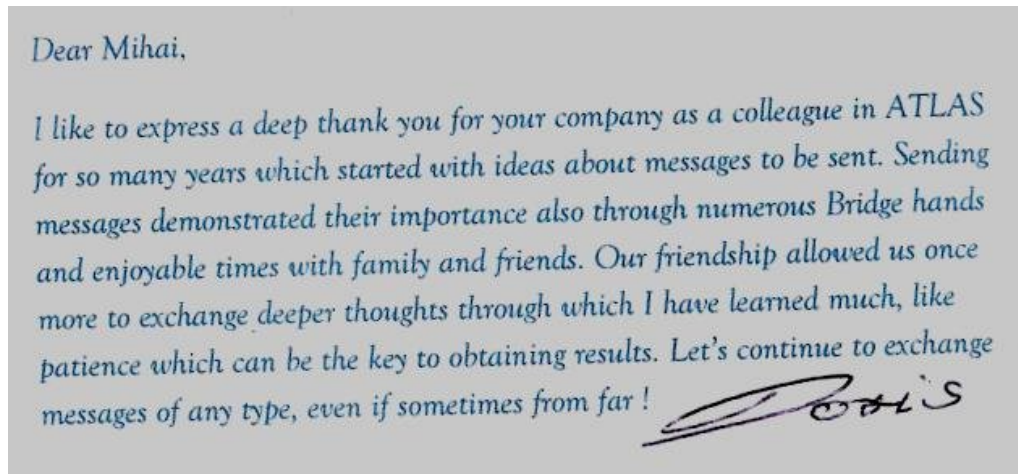 Dear Mihai,
I like to express a deep thank you for your company as a colleague in ATLAS
for so many years which started with ideas about messages to be sent. Sending
messages demonstrated their importance also through numerous Bridge hands
and enjoyable times with family and friends. Our friendship allowed us once
more to exchange deeper thoughts through which I have learned much, like
patience which can be the key to obtaining results. Let's continue to exchange
messages of any type, even if sometimes from far !